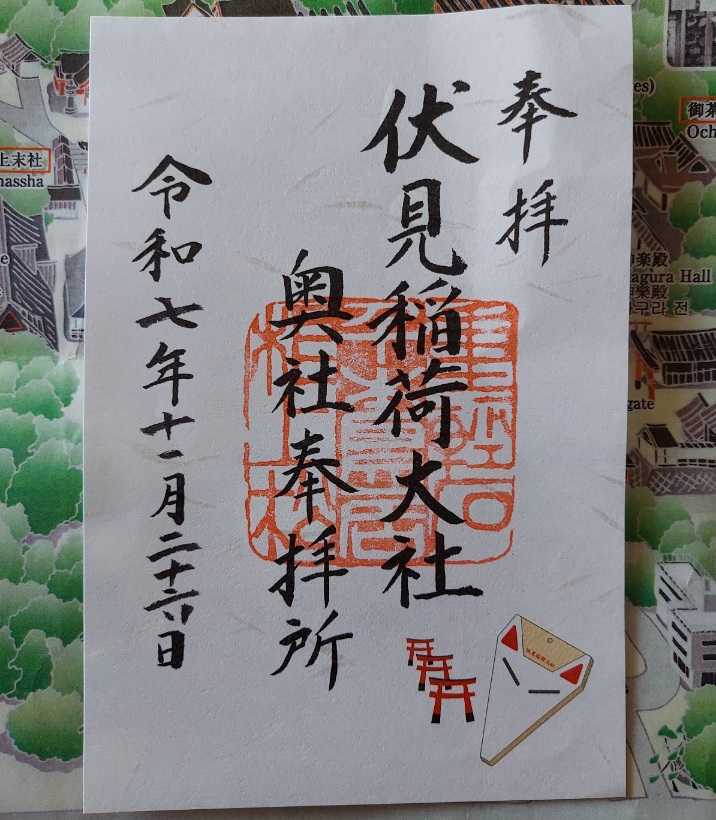 奉拝
伏見稲荷大社
奥社奉拝所
令和七年十一月二十六日
上末社
massha
御茶
Och
es)
楽殿
agura Hall
구라 전
gate